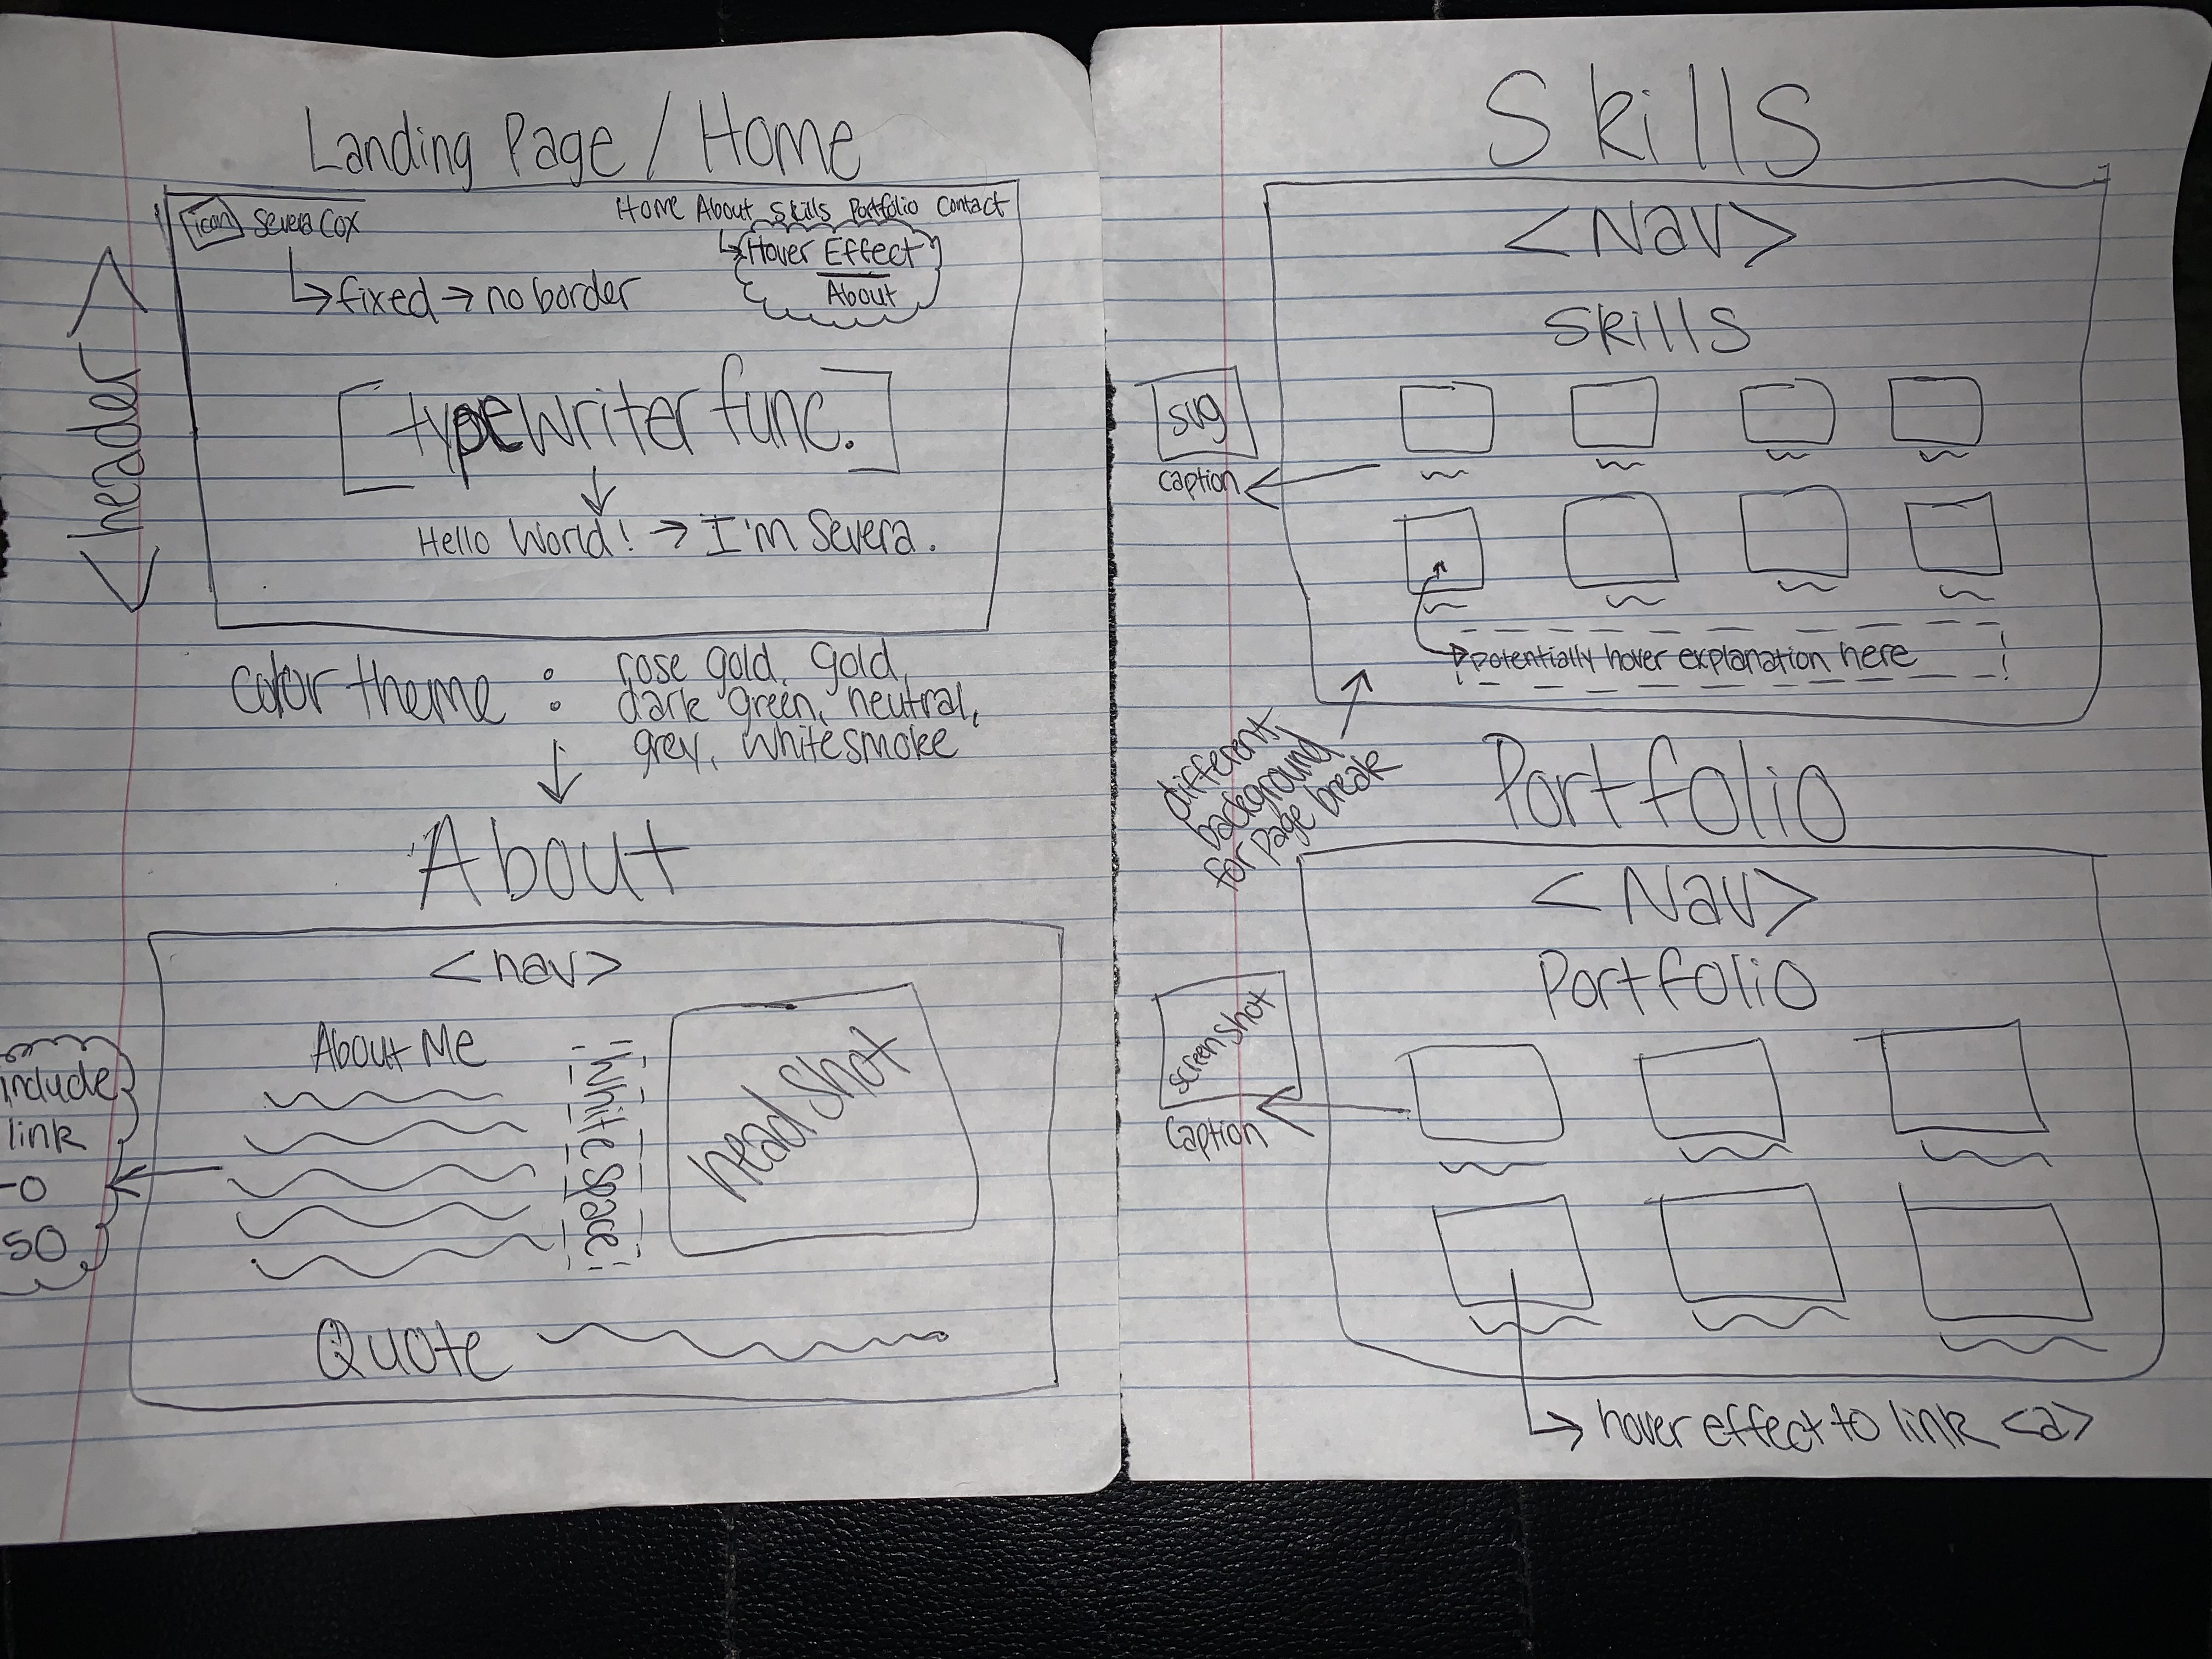 Landing Page / Home
<header>
icon Severa Cox
Home About Skills Portfolio contact
↳ Hover Effect
About
↳ fixed → no border
typewriter func.
Hello World! → I'm Severa.
Color theme : rose gold, gold,
dark green, neutral,
grey, whitesmoke
About
<nav>
About Me
include
link
so
white space
head shot
Quote
Skills
<Nav>
Skills
svg
caption
potentially hover explanation here
different
background
for page break
Portfolio
<Nav>
Portfolio
screenshot
caption
↳ hover effect to link <a>